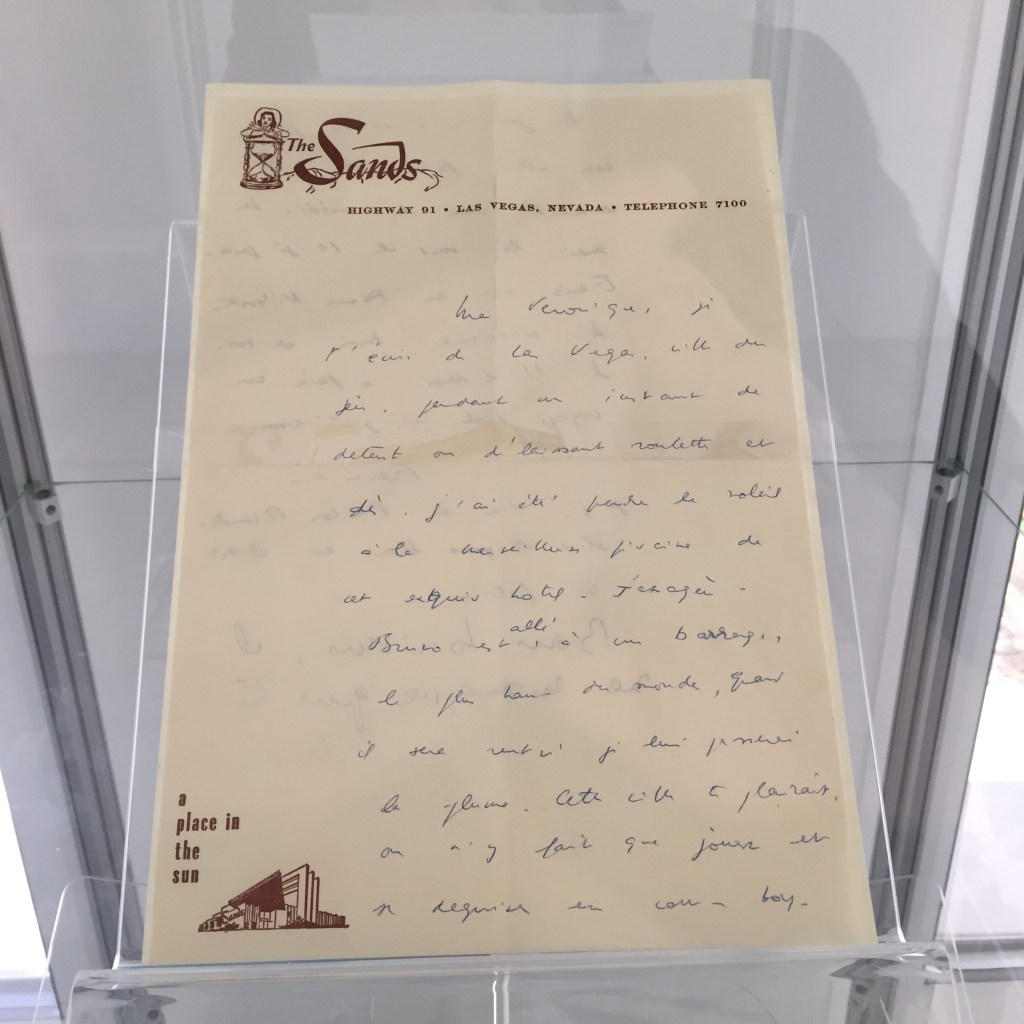 The Sands
HIGHWAY 91 • LAS VEGAS, NEVADA • TELEPHONE 7100
Ma Veronique, je
t'écris de Las Vegas, ville du
jeu, pendant un instant de
détente où délaissant roulette et
dés, j'ai été prendre le soleil
à la merveilleuse piscine de
cet exquis hotel. J'exagère.
Bruno est allé à un barrage,
le plus haut du monde, quand
il sera rentré je lui passerai
la plume. Cette ville te plairait,
on n'y fait que jouer et
se deguiser en cow-boy.
a
place in
the
sun